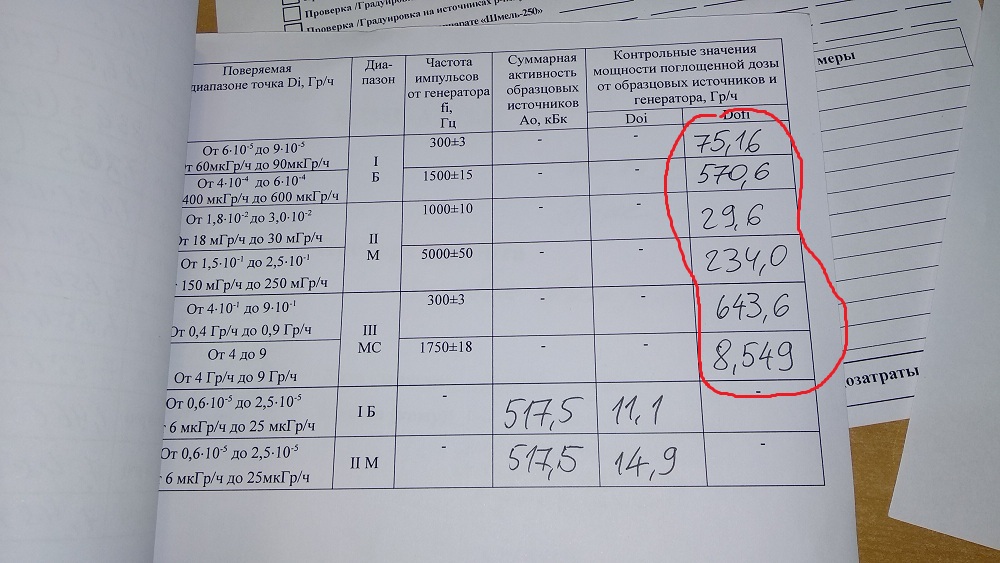 Проверка /Градуировка
Проверка /Градуировка на источниках
«Шмель-250»
меры
Поверяемая
диапазоне точка Di, Гр/ч
Диа-
пазон
Частота
импульсов
от генератора
fi,
Гц
Суммарная
активность
образцовых
источников
Ао, кБк
Контрольные значения
мощности поглощенной дозы
от образцовых источников и
генератора, Гр/ч
Doi
Dofi
От 6·10⁻⁵ до 9·10⁻⁵
от 60мкГр/ч до 90мкГр/ч
I
Б
300±3
-
-
75,16
От 4·10⁻⁴ до 6·10⁻⁴
400 мкГр/ч до 600 мкГр/ч
1500±15
-
-
570,6
От 1,8·10⁻² до 3,0·10⁻²
От 18 мГр/ч до 30 мГр/ч
II
М
1000±10
-
-
29,6
От 1,5·10⁻¹ до 2,5·10⁻¹
150 мГр/ч до 250 мГр/ч
5000±50
-
-
234,0
От 4·10⁻¹ до 9·10⁻¹
От 0,4 Гр/ч до 0,9 Гр/ч
III
МС
300±3
-
-
643,6
От 4 до 9
От 4 Гр/ч до 9 Гр/ч
1750±18
-
-
8,549
От 0,6·10⁻⁵ до 2,5·10⁻⁵
6 мкГр/ч до 25 мкГр/ч
I Б
-
517,5
11,1
-
От 0,6·10⁻⁵ до 2,5·10⁻⁵
6 мкГр/ч до 25мкГр/ч
II М
-
517,5
14,9
-
озатраты